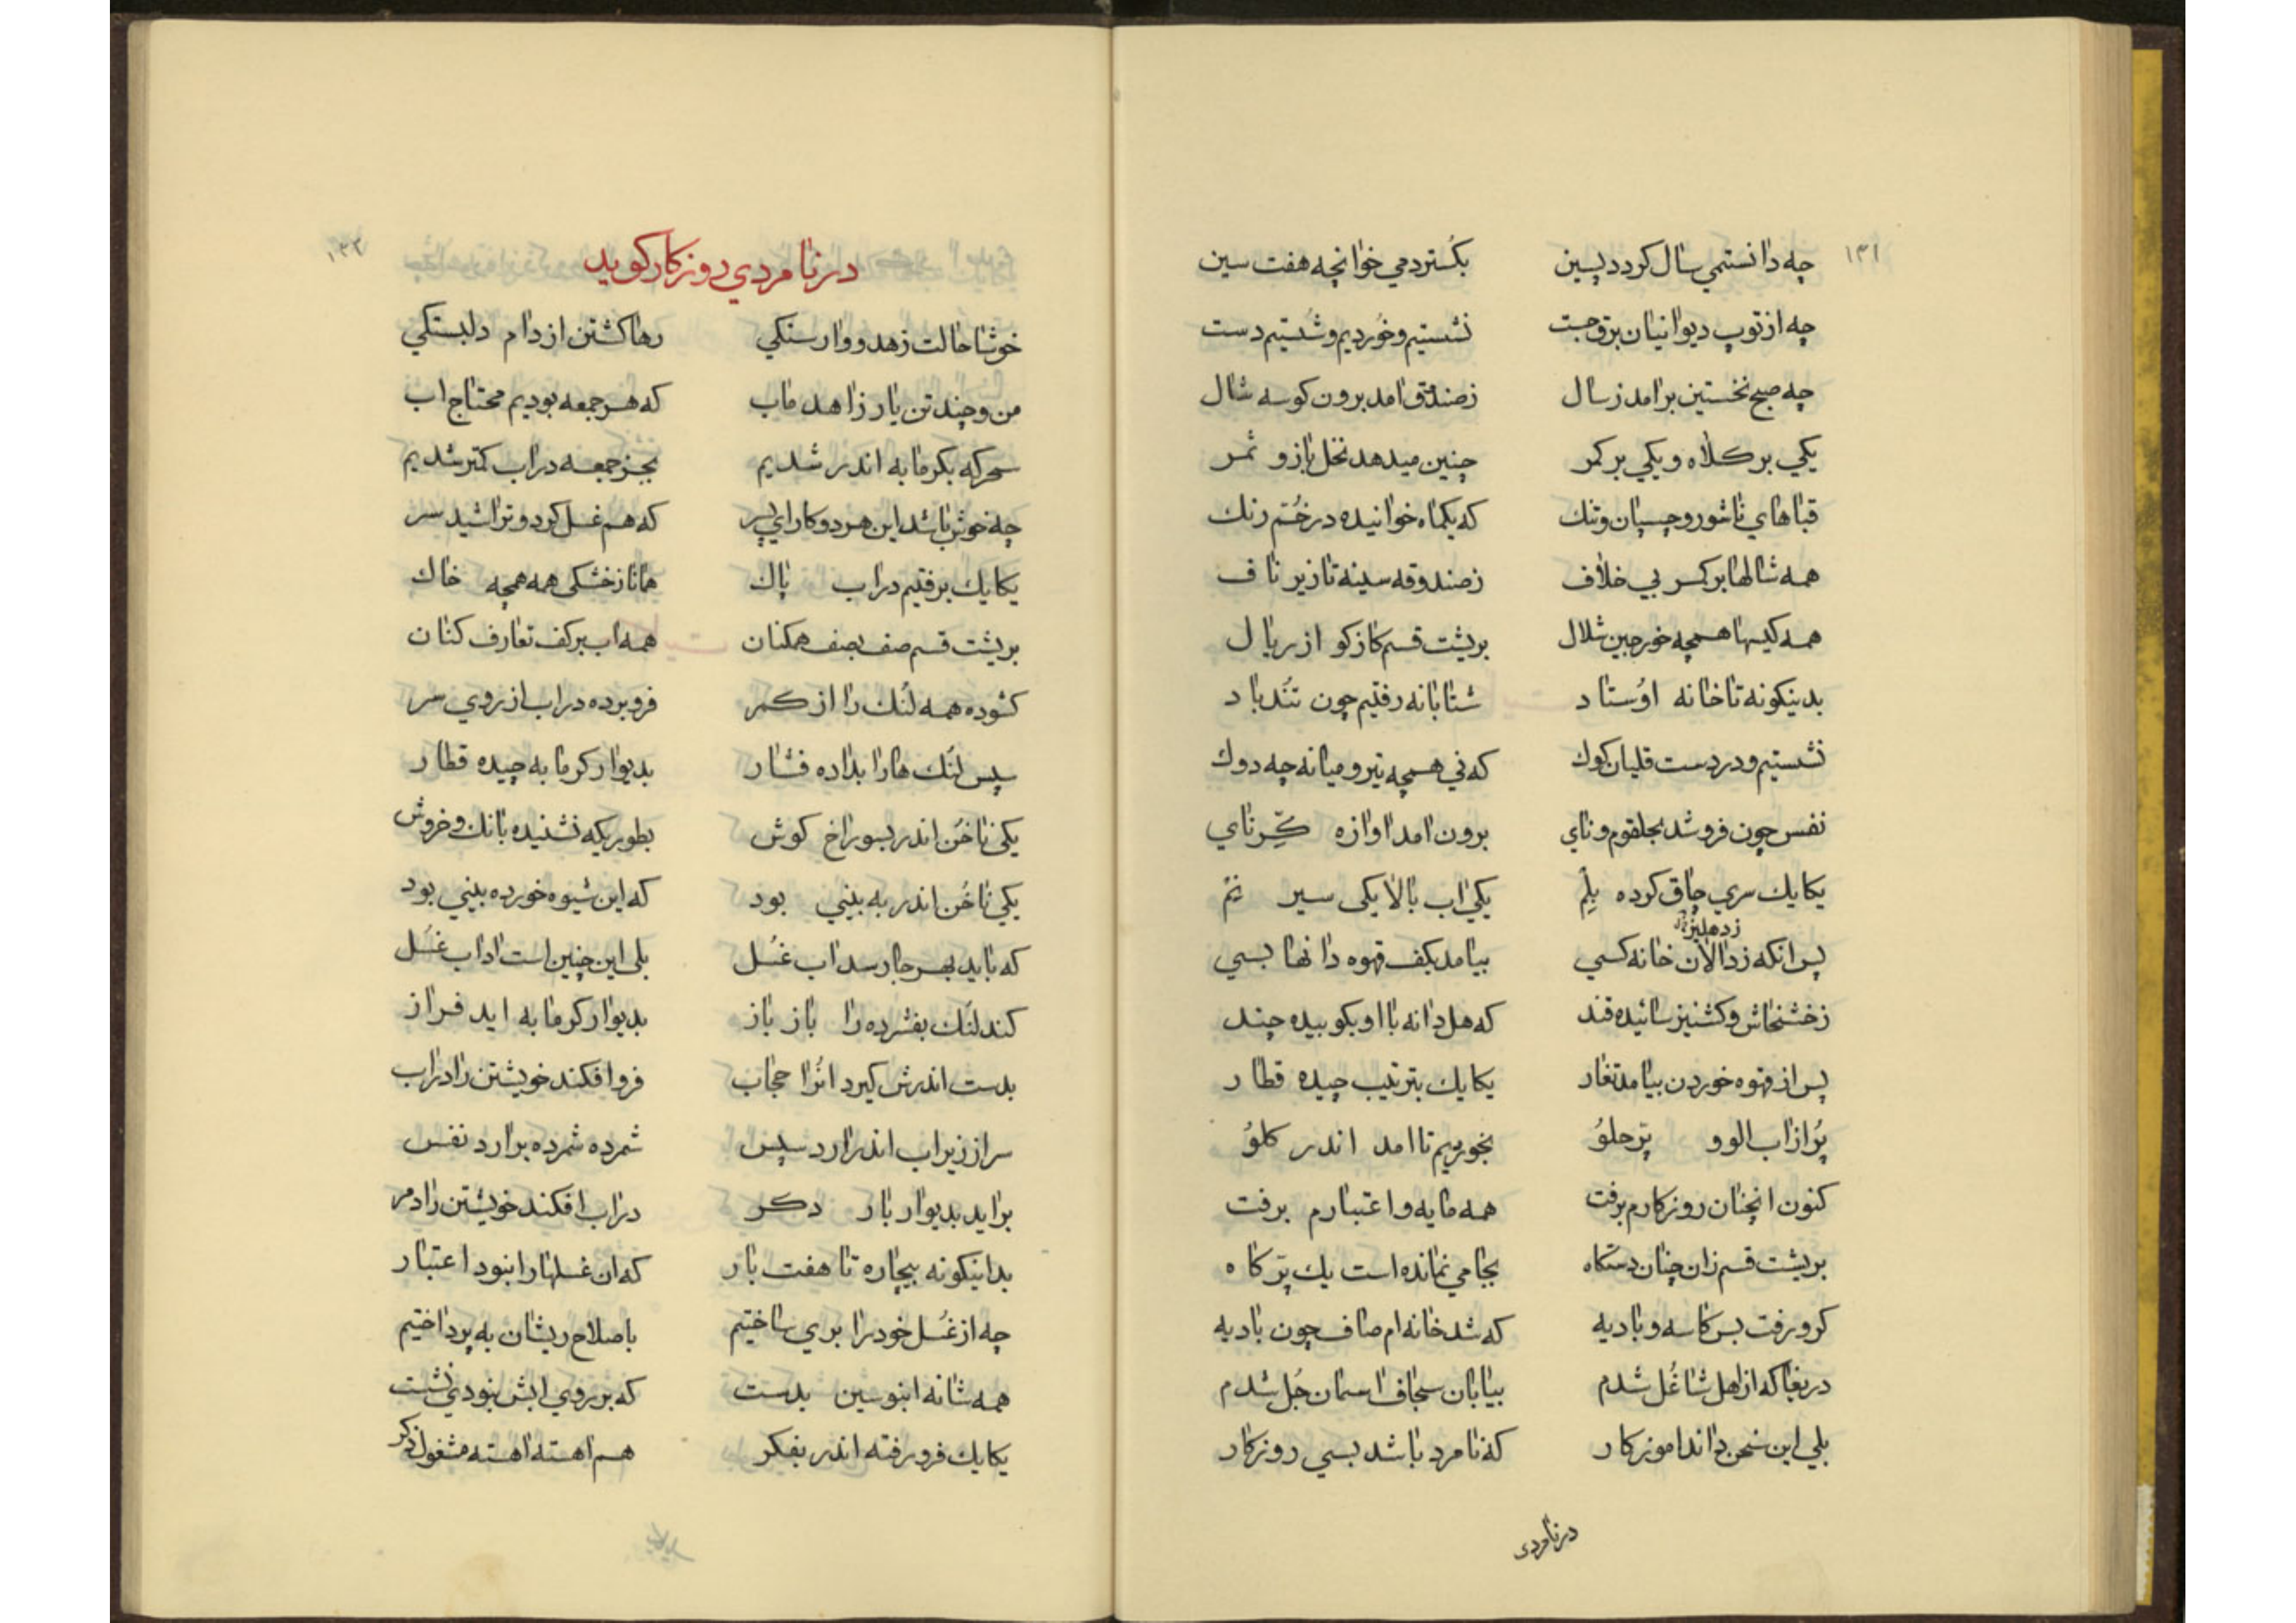 ۱۳۱
چه دانستمي سال کردد پسین بکستردمي خوانچه هفت سین
چه از توپ دیوانیان برق جست نشستیم و خوردیم و شستیم دست
چه صبح نخستین برامد ز سال ز صندق امد برون کوسه شال
یکي بر کلاه و یکي بر کمر چنین میدهد نخل بازو ثمر
قباهاي ناشور و چسپان و تنك که یکماه خوانیده در خم رنك
همه شالها بر کمر بي خلاف ز صندوقه سینه تا زیر ناف
همه کیسها همچه خورجین شلال بریشت قسم کاز کو از ریال
بدینکونه تا خانه اوستاد شتابانه رفتیم چون تندباد
نشستیم و در دست قلیان کوك که ني همچه تیر و میانه چه دوك
نفس چون فرو شد بحلقوم و ناي برون امد اوازه کرناي
یکایك سري چاق کرده یلم یکي اب بالا یکی سیر نم
ز دهلیز
پس انکه ز دالان خانه کسي بیامد بکف قهوه دانها بسي
ز خشخاش و کشنیز سائیده قند که هل دانه با او بکوبیده چند
پس از قهوه خوردن بیامد تغار یکایك بترتیب چیده قطار
پر از اب الو و پرحلو بخوردیم تا امد اندر کلو
کنون انچنان روزکارم برفت همه مایه و اعتبارم برفت
بریشت قسم زان چنان دستکاه بجا مي نمانده است یك پر کاه
کرو رفت بس کاسه و بادیه که شد خانه ام صاف چون بادیه
دریغا که از اهل شاغل شدم بیابان سجاف اسمان جل شدم
بلي این سخن داند اموزکار که نامرد باشد بسي روزکار
درنامردی
۱۳۲
در نامردي روزکار کوید
خوشا حالت زهد و وارستکي رها کشتن از دام دلبستکي
من و چند تن یار زاهد ماب که هر جمعه بودیم محتاج اب
سحرکه بکرمابه اندر شدیم بجز جمعه در اب کمتر شدیم
چه خوش باشد این هر دو کار اي پسر که هم غسل کرد و تراشید سر
یکایك برفتیم در اب پاك همانا ز خشکی همه همچه خاك
بریشت قسم صف بصف همکنان همه اب بر کف تعارف کنان
کشوده همه لنك را از کمر فرو برده در اب از روي سر
سپس لنك ها را بداده فشار بدیوار کرمابه چیده قطار
یکی ناخن اندر بسوراخ کوش بطوریکه نشنیده بانك و خروش
یکي ناخن اندر به بیني بود که این شیوه خورده بیني بود
که باید بهر جا رسد اب غسل بلی این چنین است اداب غسل
کند لنك بفشرده را باز باز بدیوار کرمابه اید فراز
بدست اندرش کیرد انرا حجاب فرو افکند خویشتن را در اب
سر از زیر اب اندر ارد سپس شمرده شمرده برارد نفس
براید بدیوار بار دکر در اب افکند خویشتن را دمر
بداینکونه بیچاره تا هفت بار که ان غسلها را نبود اعتبار
چه از غسل خود را بري ساختیم باصلاح ریشان به پرداختیم
همه شانه ابنوسین بدست که بر روي ابش نبودي نشست
یکایك فرو رفته اندر بفکر هم اهسته اهسته مشغول ذکر